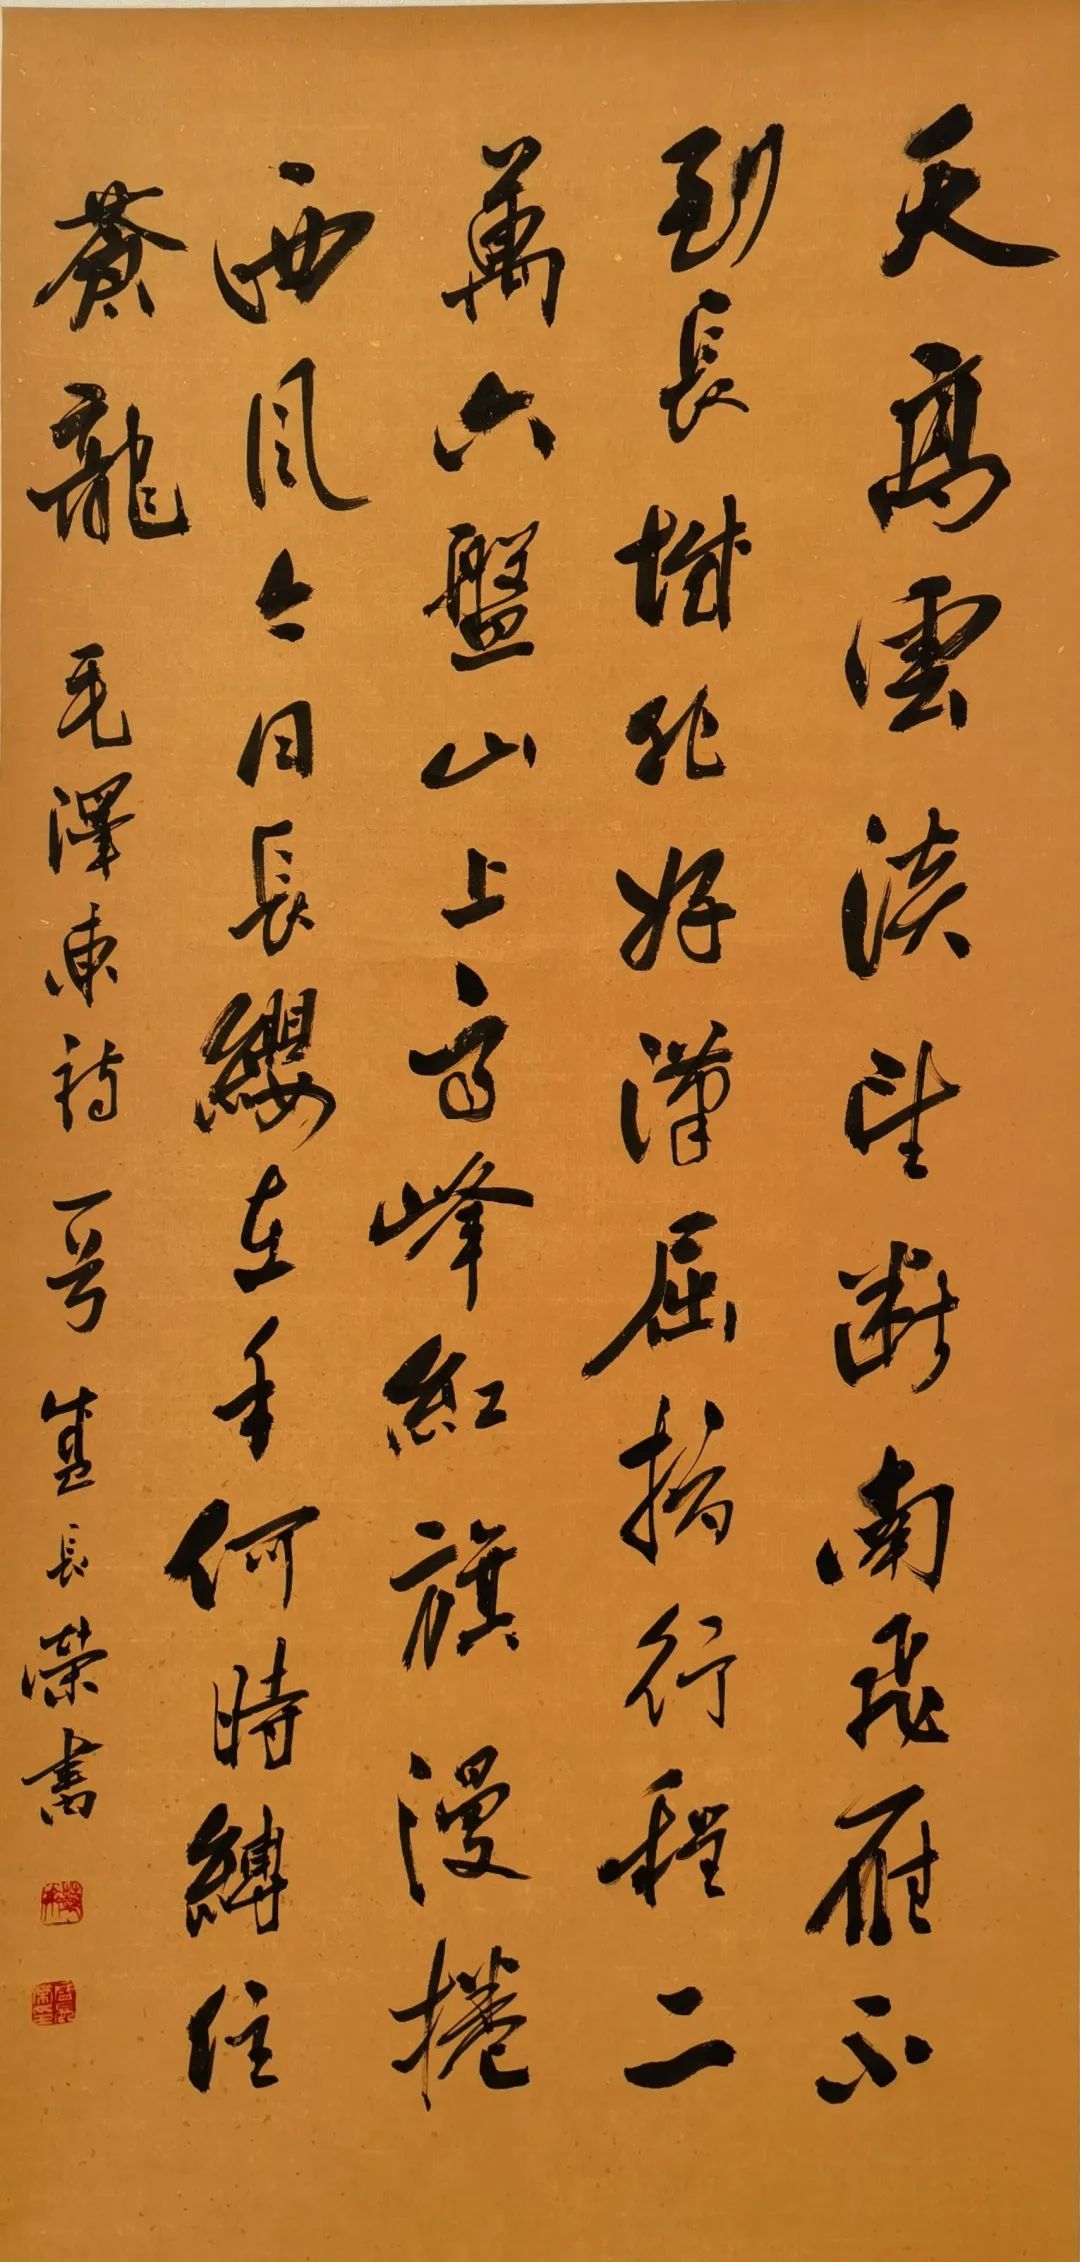 天高雲淡望断南飛雁不
到長城非好漢屈指行程二
萬六盤山上高峰紅旗漫捲
西風今日長纓在手何時縛住
蒼龍 毛澤東詩一首 盛長榮書